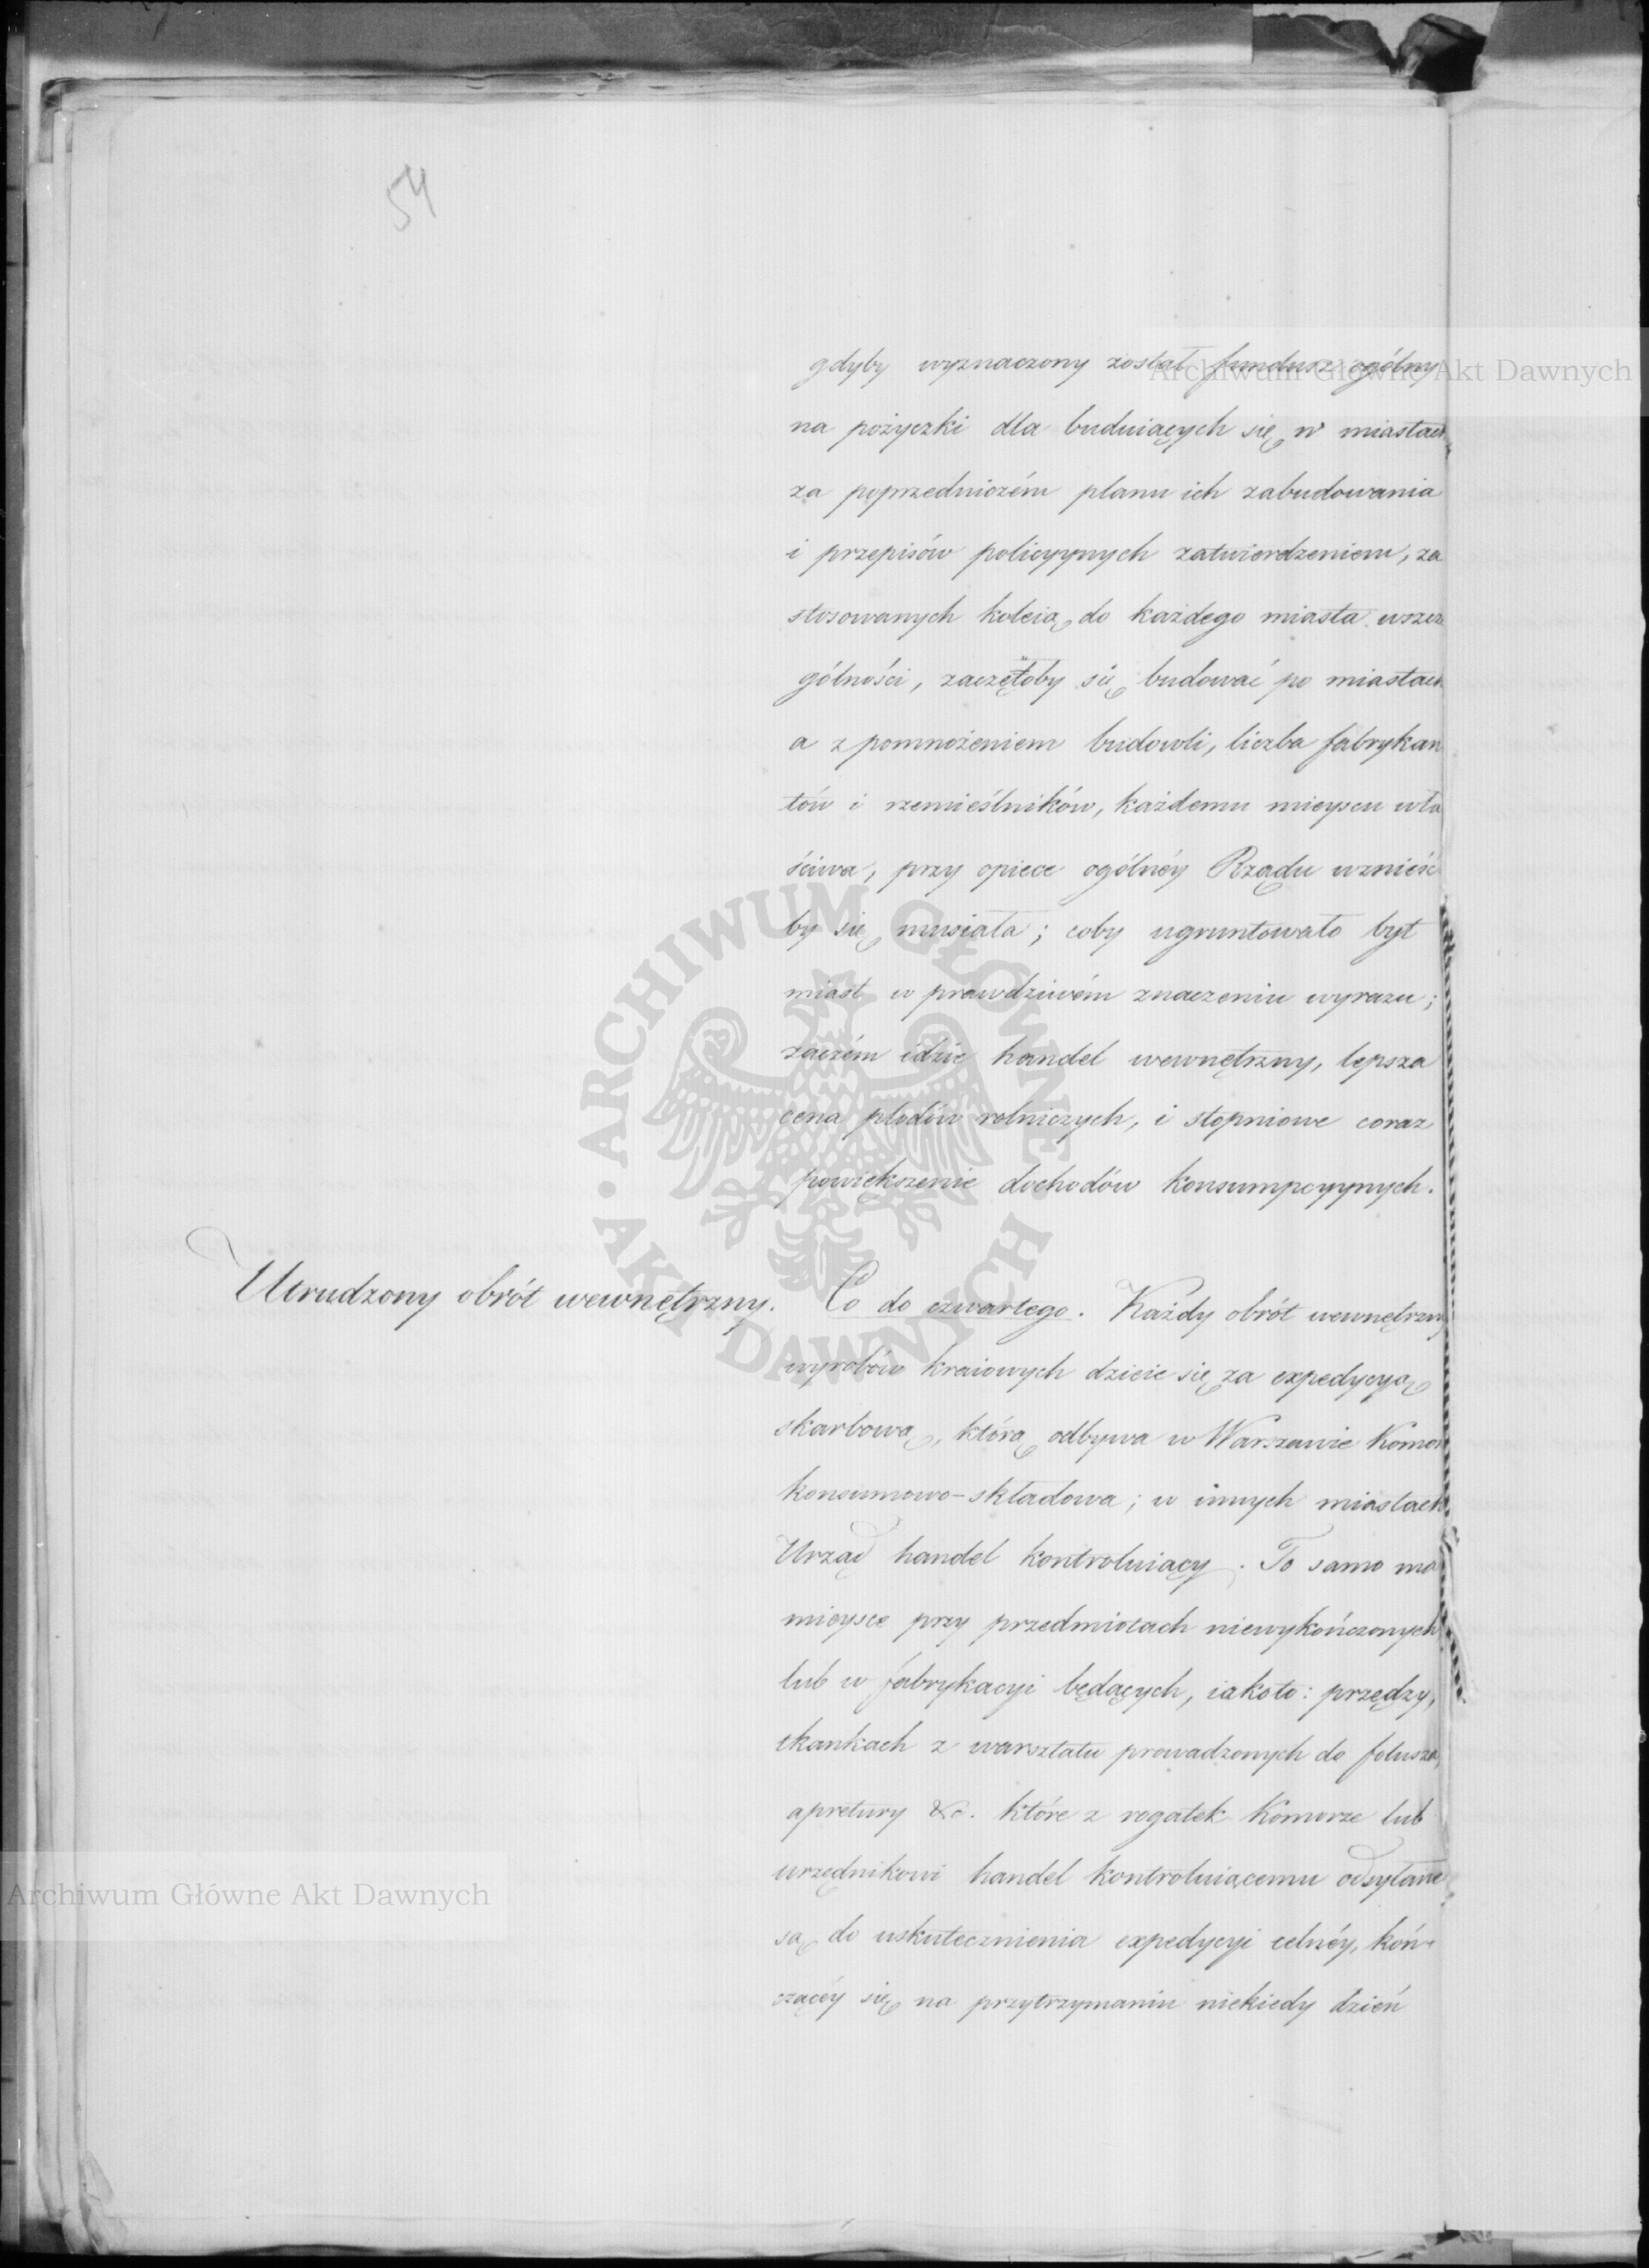 54
gdyby wyznaczony został fundusz ogólny
na pożyczki dla buduiących się w miastach
za poprzedniczém planu ich zabudowania
i przepisów policyynych zatwierdzeniem, za
stosowanych koleią do każdego miasta wszcze
gólności, zaczętoby się budować po miastach
a z pomnożeniem budowli, liczba fabrykan
tów i rzemieślników, każdemu mieyscu wła
ściwa, przy opiece ogólnéy Rządu wznieść
by się musiała; coby ugruntowało byt
miast w prawdziwém znaczeniu wyrazu;
zaczém idzie handel wewnętrzny, lepsza
cena płodów rolniczych, i stopniowe coraz
powiększenie dochodów konsumpcyynych.
Utrudzony obrót wewnętrzny.
Co do czwartego. Każdy obrót wewnętrzny
wyrobów kraiowych dzieie się za expedycyą
skarbową, którą odbywa w Warszawie Komora
konsumowo-składowa; w innych miastach
Urząd handel kontroluiący. To samo ma
mieysce przy przedmiotach niewykończonych
lub w fabrykacyi będących, iakoto: przędzy,
tkankach z warsztatu prowadzonych do folusza,
apretury &c. które z rogatek Komorze lub
urzędnikowi handel kontroluiącemu odsyłane
są do uskutecznienia expedycyi celnéy, koń-
czącéy się na przytrzymaniu niekiedy dzień
Archiwum Główne Akt Dawnych
Archiwum Główne Akt Dawnych
ARCHIWUM GŁÓWNE AKT DAWNYCH